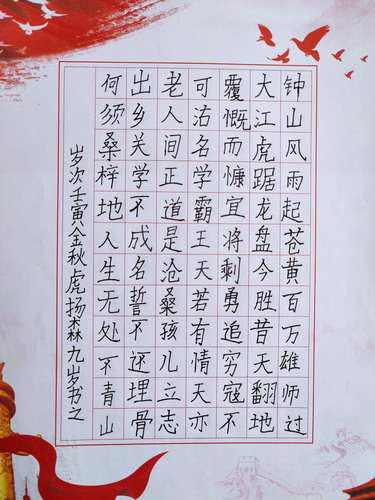 钟山风雨起苍黄百万雄师过
大江虎踞龙盘今胜昔天翻地
覆慨而慷宜将剩勇追穷寇不
可沽名学霸王天若有情天亦
老人间正道是沧桑孩儿立志
出乡关学不成名誓不还埋骨
何须桑梓地人生无处不青山
岁次壬寅金秋虎扬森九岁书之